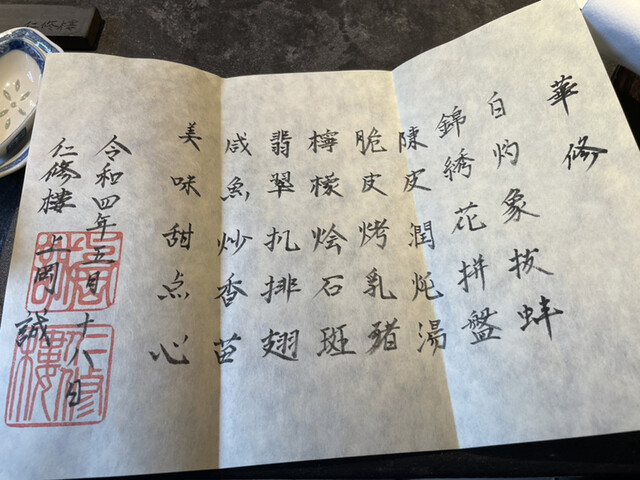 華修
白灼象拔蚌
錦绣花拼盤
陳皮潤炖湯
脆皮烤乳豬
檸檬烩石斑
翡翠扒排翅
咸魚炒香苗
美味甜点心
令和四年五月十八日
仁修樓 上岡誠
仁修樓